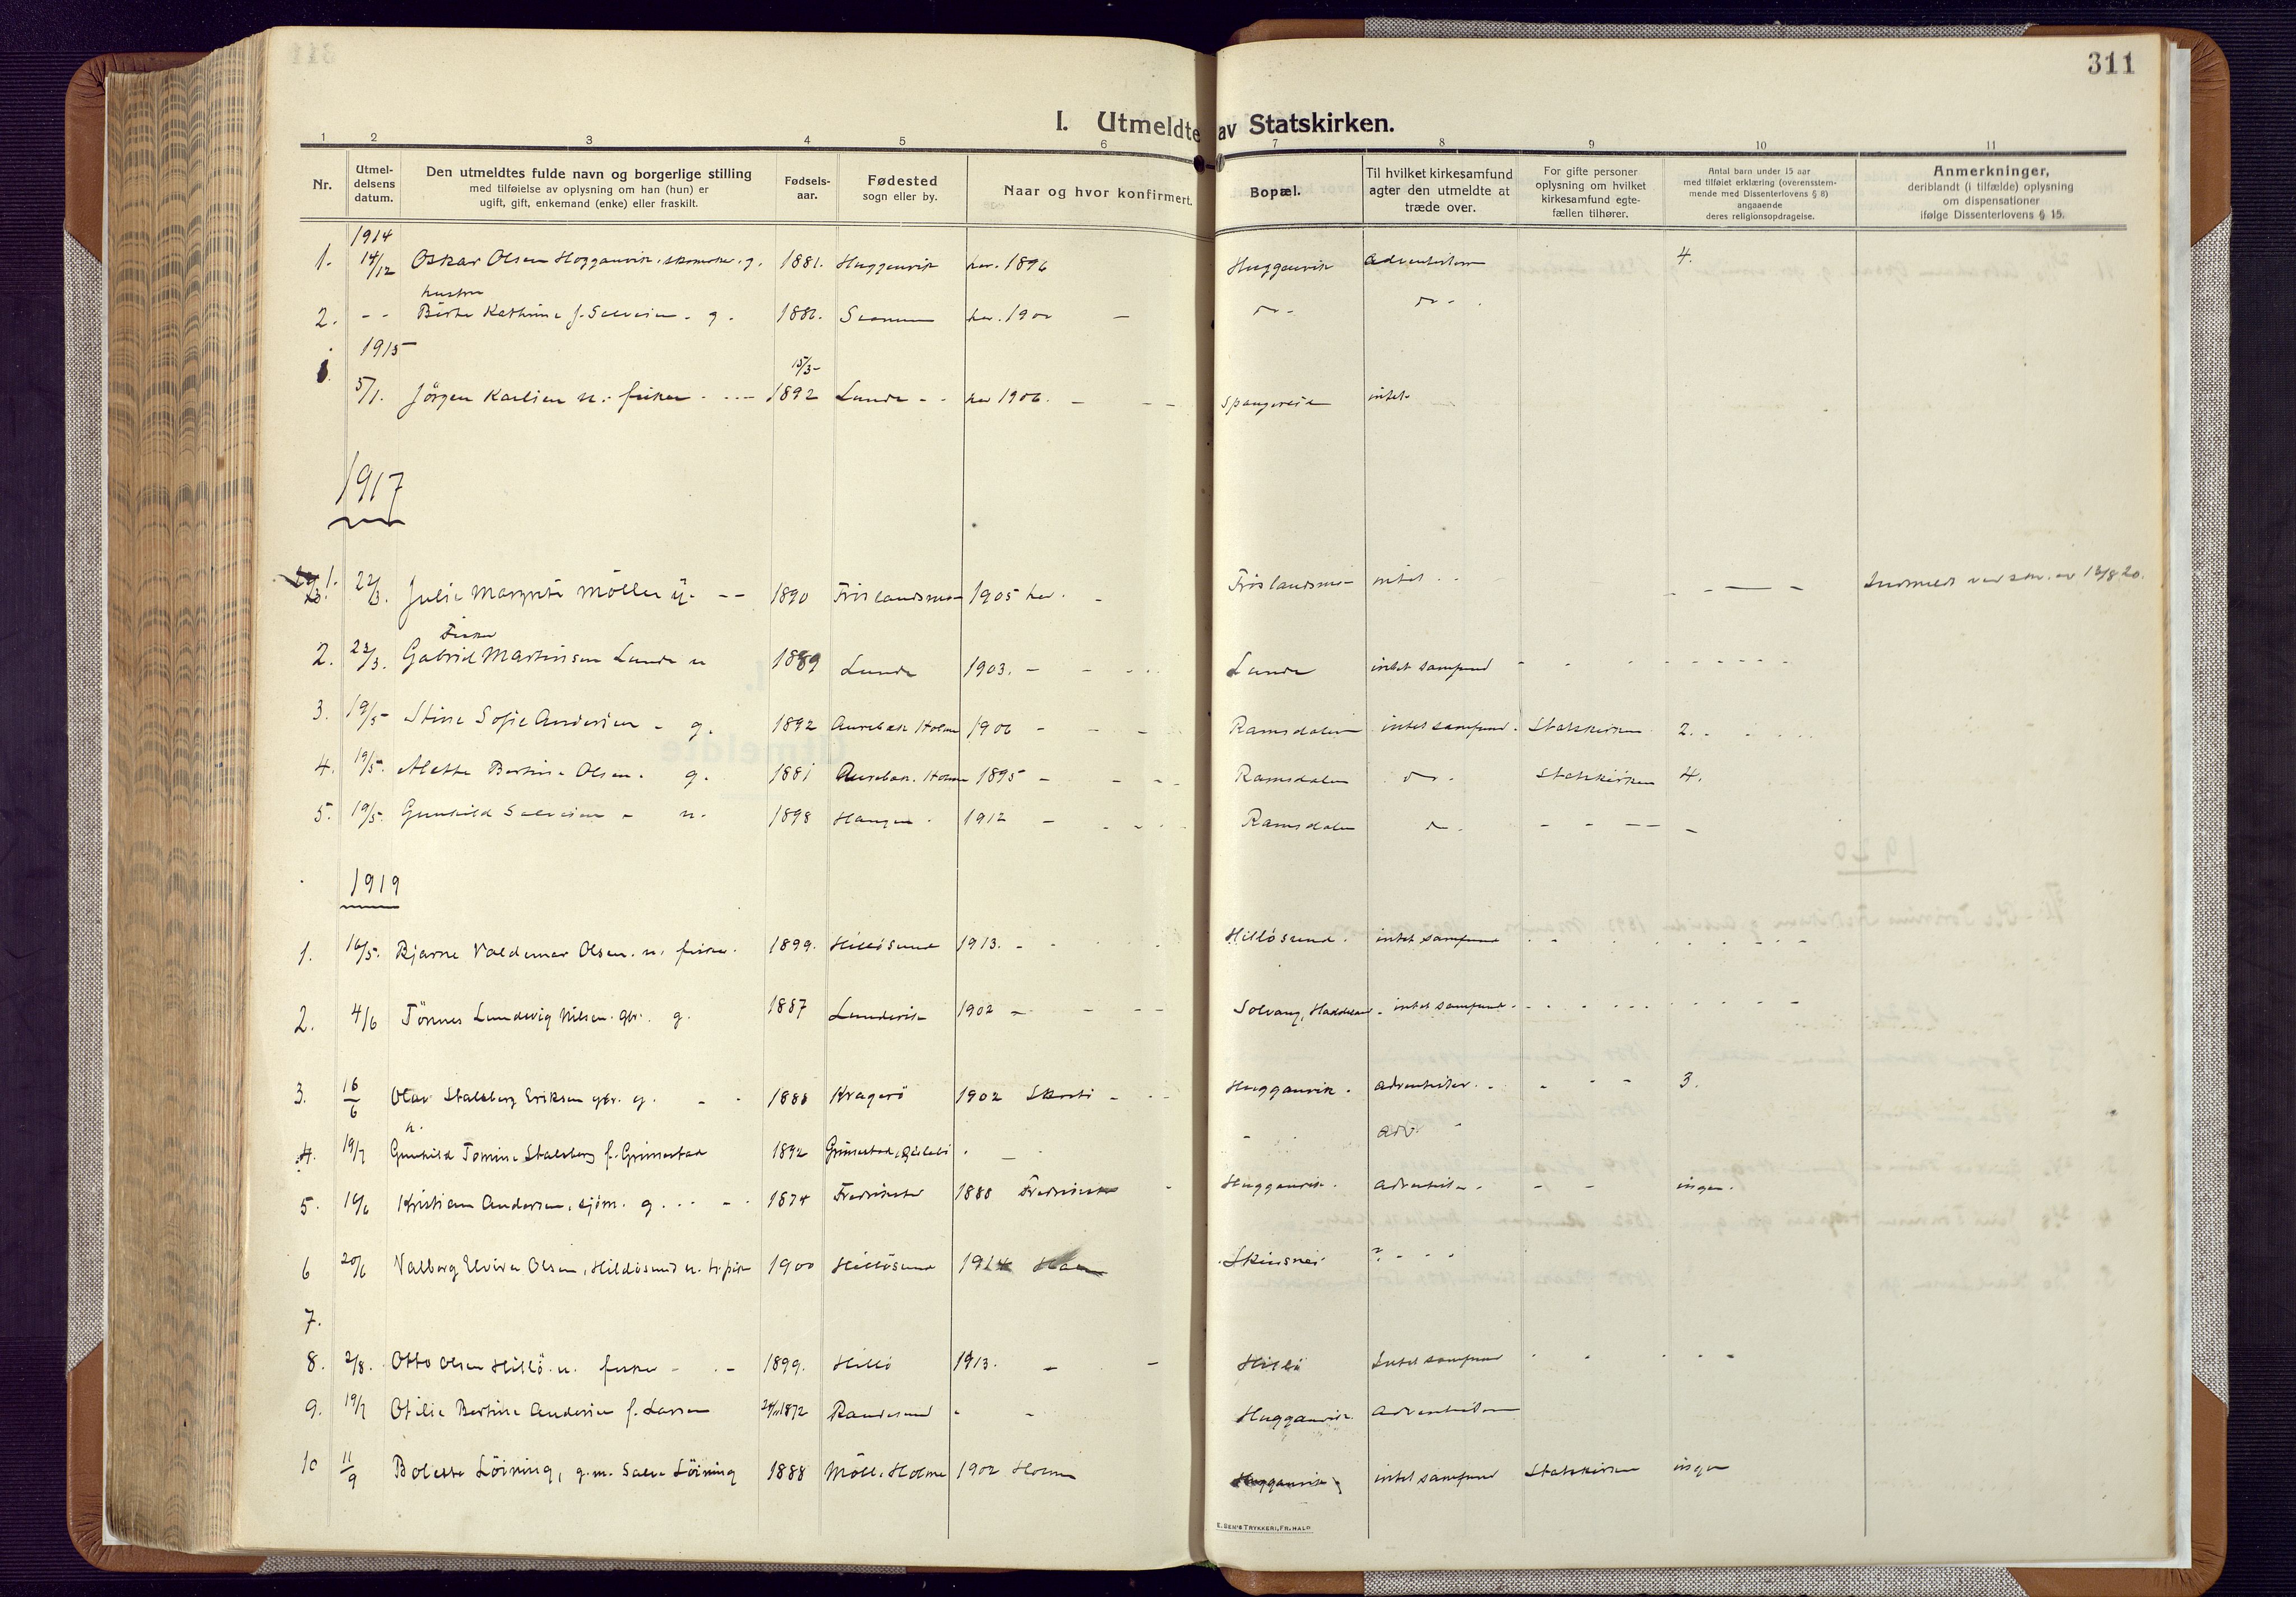 311
I. Utmeldte av Statskirken.
1 2 3 4 5 6 7 8 9 10 11
Nr.
Utmel-
delsens
datum.
Den utmeldtes fulde navn og borgerlige stilling
med tilføielse av oplysning om han (hun) er
ugift, gift, enkemand (enke) eller fraskilt.
Fødsels-
aar.
Fødested
sogn eller by.
Naar og hvor konfirmert.
Bopæl.
Til hvilket kirkesamfund
agter den utmeldte at
træde over.
For gifte personer
oplysning om hvilket
kirkesamfund egte-
fællen tilhører.
Antal barn under 15 aar
med tilføiet erklæring (overensstem-
mende med Dissenterlovens § 8)
angaaende
deres religionsopdragelse.
Anmerkninger,
deriblandt (i tilfælde) oplysning
om dispensationer
ifølge Dissenterlovens § 15.
1914
1. 14/12 Oskar Olsen Hogganvik, g. 1881. Hugganvik her. 1896 Hugganvik adventisten 4.
hustru
2. - - Kathrine f. Salvesen - g. her. 1900 - do -
1915
15/3-
5/1. Jörgen Karlsen u. fisker - 1892 Lunde - - her 1906. - Spangereid intet
1917
1. 22/3. Julie Margrete Möller u. - - 1890 Frislandsmo 1905 her. - Frislandsmo intet - - 13/8 20.
Fisker
2. 22/3. Gabriel Martinsen Lunde u 1889 Lunde 1903. - Lunde intet samfund
3. 19/5 Stine Sofie Andersen - g. 1892 Aurebak Holme 1906 - Ramsdalen intet samfund. Statskirken 2.
4. 19/5. Alette Bertine Olsen. g. 1881 Aurebak. Holme 1895 - Ramsdalen do - Statskirken 4.
5. 19/5. Gunhild Salvesen - u. 1898 1912 - Ramsdalen do - - - - -
1919
1. 16/5. Bjarne Valdemar Olsen. u. fisker. 1899. Hillösund 1913. - Hillösund. intet samfund
2. 4/6 Tönnes Lundevig Nilsen. gbr. g. 1887 Lundevik 1902 - Solvang, Haddeland - intet samfund -
3. 16/6 Olav Stalsberg Eriksen gbr. g. 1888 Kragerö 1902 - Hugganvik - adventister - 3.
4. 19/7 Gunhild Tomine Stalsberg f. Grimestad 1892 Grimestad, - - adv -
5. 16/6 Kristian Andersen, sjöm. g. 1874 Fredrikstad 1888 Fredrikstad Hugganvik. adventister - - - ingen.
6 20/6 Valborg Elvira Olsen, Hildösund u. 1900 Hillösund 1914 Skinsnes ? - - -
7.
8. 2/8. Otto Olsen Hillö. u. fisker - - 1899. Hillö 1913. - - Hillö Intet samfund
9. 19/7 Otilie Bertine Andersen f. Larsen 1872 Randesund - - Hugganvik adventisten
10 11/9 Bolette Löining, g.m. Salve Löining 1888 Möll. Holme 1902 Holme Hugganvik intet samfund Statskirken ingen
E. SEM'S TRYKKERI, FR.HALD